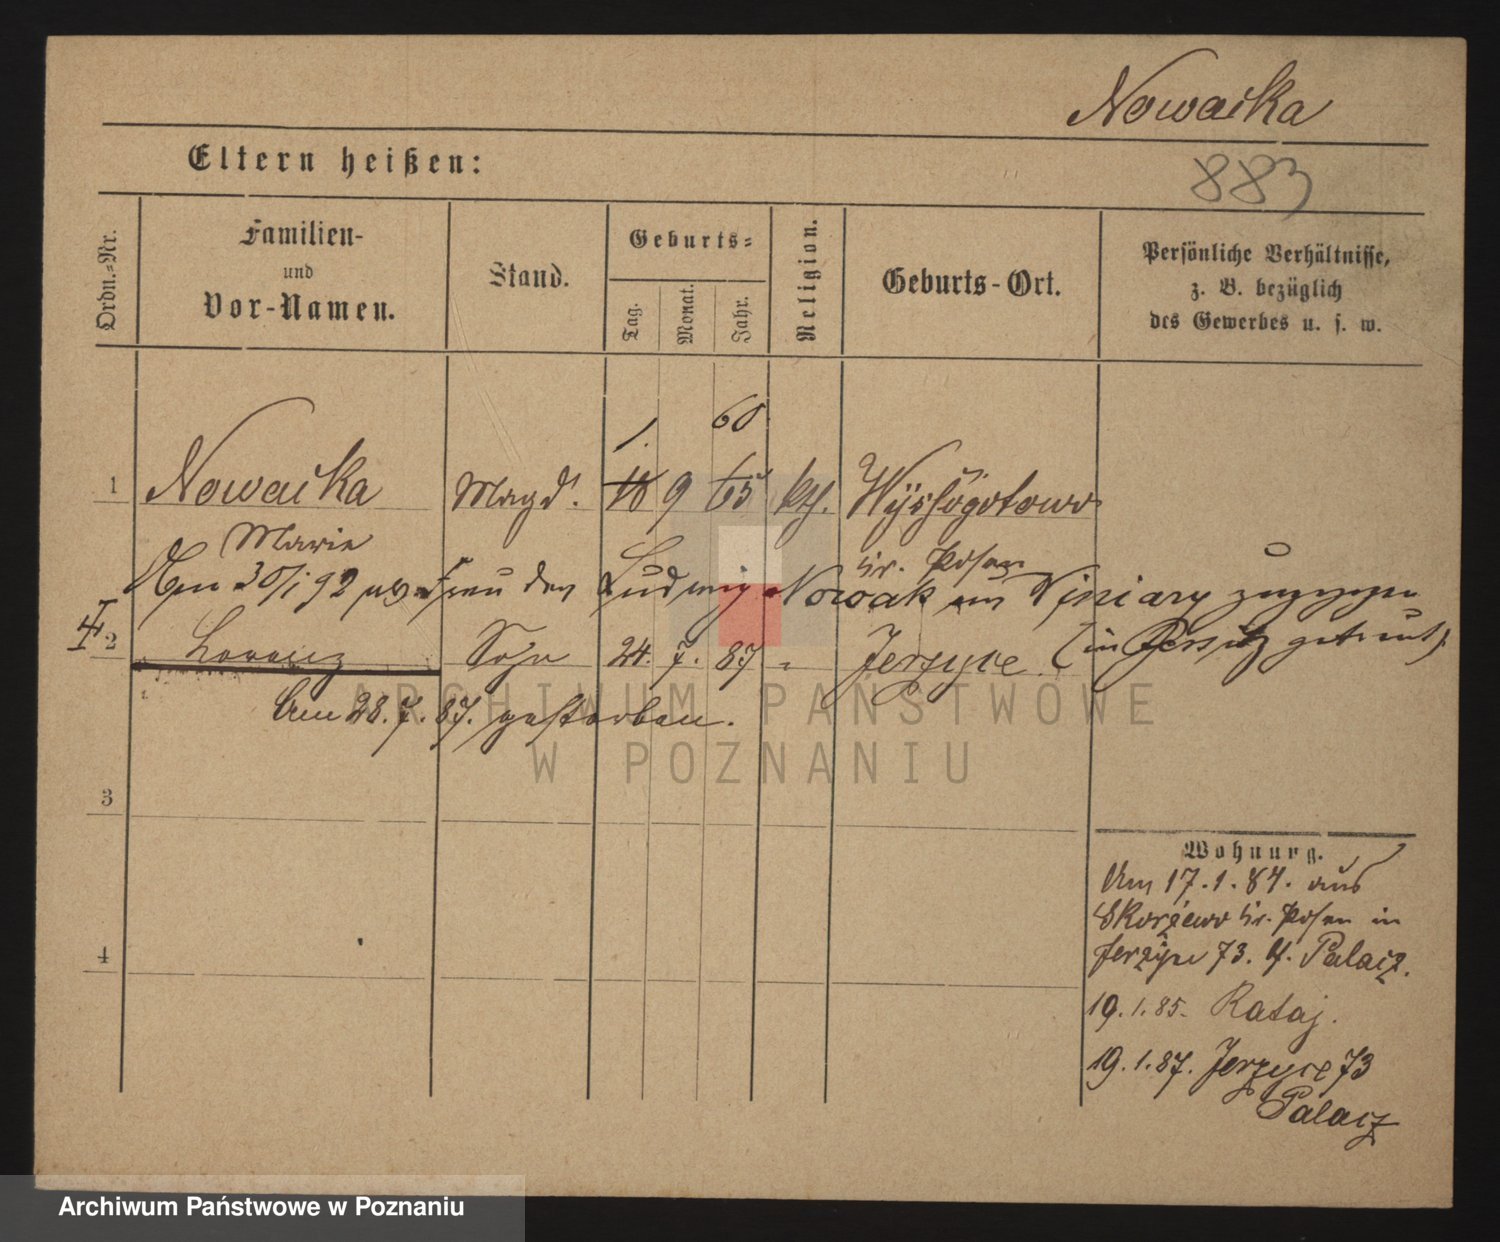 Nowacka
883
Eltern heißen:
Ordn.=Nr.
Familien-
und
Vor-Namen.
Stand.
Geburts=
Tag.
Monat.
Jahr.
Religion.
Geburts-Ort.
Persönliche Verhältnisse,
z. B. bezüglich
des Gewerbes u. s. w.
1. 60
1 Nowacka Magd. 18 9 65 kth. Wyssogotowo
Marie Kr. Posen
Am 30/1 92 als Frau des Ludwig Nowak in Winiary zugezogen
2 Lorenz Sohn 24. 7. 87 " Jerzyce (in Jersitz getraut).
Am 28.7.87. gestorben.
3
4
Wohnung.
Am 17.1.84. aus
Skorzewo Kr. Posen in
Jerzyce 73. Palacz.
19.1.85. Rataj.
19.1.87. Jerzyce 73
Palacz
ARCHIWUM PAŃSTWOWE
W POZNANIU
Archiwum Państwowe w Poznaniu